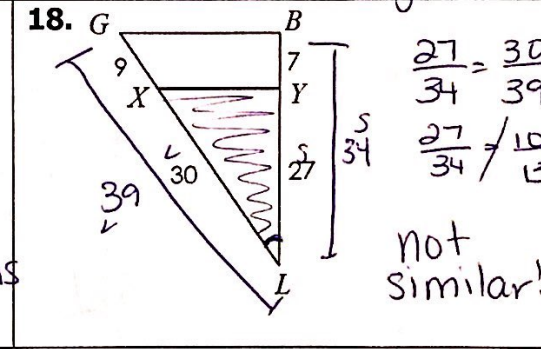 18. G B
9 7
X Y
L 30 S 27 S 34
39 L
L
27/34 = 30/39
27/34 ≠ 10/13
not
similar!